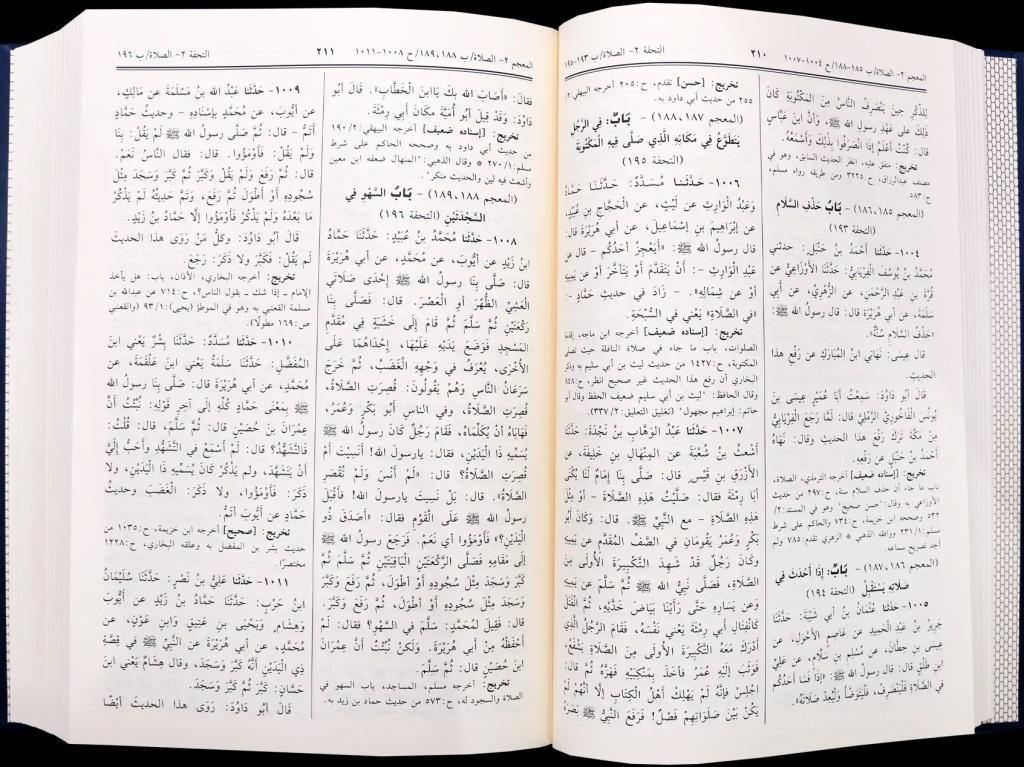 المعجم ٢- الصلاة/ ب ١٨٥-١٨٨/ ح ١٠٠٤-١٠٠٧
٢١٠
التحفة ٢- الصلاة/ ب ١٩٣-١٩٥
لِلذِّكْرِ حِينَ يَنْصَرِفُ النَّاسُ مِنَ المَكْتُوبَةِ كَانَ
ذَلِكَ عَلَى عَهْدِ رسولِ الله ﷺ، وَأَنَّ ابنَ عَبَّاسٍ
قال: كُنْتُ أَعْلَمُ إِذَا انْصَرَفُوا بِذَلِكَ وَأَسْمَعُهُ.
تخريج: متفق عليه، انظر الحديث السابق، وهو في
مصنف عبدالرزاق، ح: ٣٢٢٥ ومن طريقه رواه مسلم،
ح: ٥٨٣.
(المعجم ١٨٥، ١٨٦) - بَابُ حَذْفِ السَّلَامِ
(التحفة ١٩٣)
١٠٠٤- حَدَّثنا أَحْمَدُ بنُ حَنْبَلٍ: حدثني
مُحمَّدُ بنُ يُوسُفَ الْفِرْيَابِيُّ: حَدَّثَنا الأَوْزَاعِيُّ عن
قُرَّةَ بنِ عَبْدِ الرَّحْمَنِ، عن الزُّهْرِيِّ، عن أَبِي
سَلَمَةَ، عن أبي هُرَيْرَةَ قال: قال رسولُ الله ﷺ:
«حَذْفُ السَّلَامِ سُنَّةٌ».
قال عِيسَى: نَهَانِي ابنُ المُبَارَكِ عن رَفْعِ هذا
الحديثِ.
قال أَبُو دَاوُدَ: سَمِعْتُ أبَا عُمَيْرٍ عِيسَى بنَ
يُونُسَ الْفَاخُورِيَّ الرَّمْلِيَّ قال: لَمَّا رَجَعَ الْفِرْيَابِيُّ
مِنْ مَكَّةَ تَرَكَ رَفْعَ هذا الحديثِ وقال: نَهَاهُ
أَحْمَدُ بنُ حَنْبَلٍ عن رَفْعِهِ.
تخريج: [إسناده ضعيف] أخرجه الترمذي، الصلاة،
باب ما جاء أن حذف السلام سنة، ح: ٢٩٧ من حديث
الأوزاعي به وقال: "حسن صحيح" وهو في المسند: ٢/
٥٣٢ وصححه ابن خزيمة، ح: ٧٣٤ والحاكم على شرط
مسلم: ١/ ٢٣١ ووافقه الذهبي * الزهري تقدم: ٧٨٥ ولم
أجد تصريح سماعه.
(المعجم ١٨٦، ١٨٧) - بَابٌ: إِذَا أَحْدَثَ فِي
صَلَاتِهِ يَسْتَقْبِلُ (التحفة ١٩٤)
١٠٠٥- حَدَّثنا عُثْمَانُ بنُ أَبي شَيْبَةَ: حَدَّثَنا
جَرِيرُ بنُ عَبْدِ الْحَمِيدِ عن عَاصِمٍ الأَحْوَلِ، عن
عِيسَى بنِ حِطَّانَ، عن مُسْلِمِ بنِ سَلَّامٍ، عن عَلِيِّ
ابنِ طَلْقٍ قال: قال رسولُ الله ﷺ: «إِذَا فَسَا أَحَدُكُم
في الصَّلَاةِ فَلْيَنْصَرِفْ، فَلْيَتَوَضَّأْ وَلْيُعِدْ صَلَاتَهُ».
تخريج: [حسن] تقدم، ح: ٢٠٥
٢٥٥ من حديث أبي داود به.
(المعجم ١٨٧، ١٨٨) - بَابٌ: فِي الرَّجُلِ
يَتَطَوَّعُ فِي مَكَانِهِ الَّذِي صَلَّى فِيهِ المَكْتُوبَةَ
(التحفة ١٩٥)
١٠٠٦- حَدَّثنا مُسَدَّدٌ: حَدَّثَنا حَمَّادٌ
وَعَبْدُ الْوَارِثِ عن لَيْثٍ، عن الْحَجَّاجِ بنِ عُبَيْدٍ،
عن إِبْراهِيمَ بنِ إِسْمَاعِيلَ، عن أَبي هُرَيْرَةَ قال:
قال رسولُ الله ﷺ: «أَيَعْجِزُ أَحَدُكُم - قال عن
عَبْدِ الْوَارِثِ -: أَنْ يَتَقَدَّمَ أَوْ يَتَأَخَّرَ أَوْ عن يَمِينِهِ
أَوْ عن شِمَالِهِ». - زَادَ في حديثِ حَمَّادٍ -:
«في الصَّلَاةِ» يَعْني في السُّبْحَةِ.
تخريج: [إسناده ضعيف] أخرجه ابن ماجه، إقامة
الصلوات، باب ما جاء في صلاة النافلة حيث تصلى
المكتوبة، ح: ١٤٢٧ من حديث ليث بن أبي سليم به وذكر
البخاري أن رفع هذا الحديث غير صحيح انظر، ح: ٨٤٨
وقال الحافظ: "ليث بن أبي سليم ضعيف الحفظ وقال أبو
حاتم: إبراهيم مجهول" (تغليق التعليق: ٢/ ٣٣٧).
١٠٠٧- حَدَّثنا عَبْدُ الْوَهَّابِ بنُ نَجْدَةَ: حَدَّثَنا
أَشْعَثُ بنُ شُعْبَةَ عن المِنْهَالِ بنِ خَلِيفَةَ، عن
الأَزْرَقِ بنِ قَيْسٍ قال: صَلَّى بِنَا إِمَامٌ لَنا يُكْنَى
أَبَا رِمْثَةَ فقال: صَلَّيْتُ هَذِهِ الصَّلَاةَ - أَوْ مِثْلَ
هَذِهِ الصَّلَاةِ - مع النَّبيِّ ﷺ. قال: وَكَانَ أَبُو
بَكْرٍ وَعُمَرُ يَقُومَانِ في الصَّفِّ المُقَدَّمِ عن يَمِينِهِ
وَكَانَ رَجُلٌ قَدْ شَهِدَ التَّكْبِيرَةَ الأُولَى مِنَ
الصَّلَاةِ، فَصَلَّى نَبِيُّ الله ﷺ ثُمَّ سَلَّمَ عن يَمِينِهِ
وَعن يَسَارِهِ حَتَّى رَأَيْنَا بَيَاضَ خَدَّيْهِ، ثُمَّ انْفَتَلَ
كَانْفِتَالِ أَبي رِمْثَةَ يَعْني نَفْسَهُ، فَقَامَ الرَّجُلُ الَّذِي
أَدْرَكَ مَعَهُ التَّكْبِيرَةَ الأُولَى مِنَ الصَّلَاةِ يَشْفَعُ،
فَوَثَبَ إِلَيْهِ عُمَرُ فأَخَذَ بِمَنْكِبِهِ فَهَزَّهُ ثُمَّ قال:
اجْلِسْ فإِنَّهُ لَمْ يَهْلِكْ أَهْلُ الْكِتَابِ إِلَّا أَنَّهُمْ لَمْ
يَكُنْ بَيْنَ صَلَوَاتِهِمْ فَصْلٌ! فَرَفَعَ النَّبِيُّ ﷺ بَصَرَهُ
المعجم ٢- الصلاة/ ب ١٨٨، ١٨٩/ ح ١٠٠٨-١٠١١
٢١١
التحفة ٢- الصلاة/ ب ١٩٦
فقالَ: «أَصَابَ الله بكَ يَاابنَ الْخَطَّابِ». قالَ أَبُو
دَاوُدَ: وَقَدْ قِيلَ أَبُو أُمَيَّةَ مَكَانَ أبي رِمْثَةَ.
تخريج: [إسناده ضعيف] أخرجه البيهقي: ٢/ ١٩٠
من حديث أبي داود به وصححه الحاكم على شرط
مسلم: ١/ ٢٧٠ * وقال الذهبي: "المنهال ضعفه ابن معين
وأشعث فيه لين والحديث منكر".
(المعجم ١٨٨، ١٨٩) - بَابُ السَّهْوِ فِي
السَّجْدَتَيْنِ (التحفة ١٩٦)
١٠٠٨- حَدَّثنا مُحمَّدُ بنُ عُبَيْدٍ: حَدَّثَنا حَمَّادُ
ابنُ زَيْدٍ عن أَيُّوبَ، عن مُحمَّدٍ، عن أبي هُرَيْرَةَ
قال: صَلَّى بِنَا رسولُ الله ﷺ إِحْدَى صَلَاتَيِ
الْعَشِيِّ الظُّهْرَ أَوِ الْعَصْرَ. قال: فَصَلَّى بِنَا
رَكْعَتَيْنِ ثُمَّ سَلَّمَ ثُمَّ قَامَ إِلَى خَشَبَةٍ في مُقَدَّمِ
المَسْجِدِ فَوَضَعَ يَدَيْهِ عَلَيْهَا، إِحْدَاهُمَا عَلَى
الأُخْرَى، يُعْرَفُ في وَجْهِهِ الْغَضَبُ، ثُمَّ خَرَجَ
سَرَعَانُ النَّاسِ وَهُمْ يَقُولُونَ: قُصِرَتِ الصَّلَاةُ،
قُصِرَتِ الصَّلَاةُ، وفي الناسِ أَبُو بَكْرٍ وَعُمَرُ،
فَهَابَاهُ أنْ يُكَلِّمَاهُ، فَقَامَ رَجُلٌ كَانَ رسولُ الله ﷺ
يُسَمِّيهِ ذَا الْيَدَيْنِ، فقال: يارسولَ الله! أَنَسِيتَ أَمْ
قُصِرَتِ الصَّلَاةُ؟ قال: «لَمْ أَنْسَ وَلَمْ تُقْصَرِ
الصَّلَاةُ». قال: بَلْ نَسِيتَ يارسولَ الله! فأَقْبَلَ
رسولُ الله ﷺ عَلَى الْقَوْمِ فقال: «أَصَدَقَ ذُو
الْيَدَيْنِ؟» فأَوْمَؤُوا أي نَعَمْ. فَرَجَعَ رسولُ الله ﷺ
إِلَى مَقَامِهِ فَصَلَّى الرَّكْعَتَيْنِ الْبَاقِيَتَيْنِ ثُمَّ سَلَّمَ ثُمَّ
كَبَّرَ وَسَجَدَ مِثْلَ سُجُودِهِ أَوْ أَطْوَلَ، ثُمَّ رَفَعَ وَكَبَّرَ
وَسَجَدَ مِثْلَ سُجُودِهِ أَوْ أَطْوَلَ، ثُمَّ رَفَعَ وَكَبَّرَ.
قال: فَقِيلَ لمُحمَّدٍ: سَلَّمَ في السَّهْوِ؟ فقال: لَمْ
أَحْفَظْهُ مِنْ أبي هُرَيْرَةَ. وَلَكِنْ نُبِّئْتُ أنَّ عِمْرَانَ
ابنَ حُصَيْنٍ قال: ثُمَّ سَلَّمَ.
تخريج: أخرجه مسلم، المساجد، باب السهو في
الصلاة والسجود له، ح: ٥٧٣ من حديث حماد بن زيد به.
١٠٠٩- حَدَّثنا عَبْدُ الله بنُ مَسْلَمَةَ عن مَالِكٍ،
عن أَيُّوبَ، عن مُحمَّدٍ بإِسْنَادِهِ - وحديثُ حَمَّادٍ
أَتَمُّ - قال: ثُمَّ صَلَّى رسولُ الله ﷺ لَمْ يَقُلْ: بِنَا
وَلَمْ يَقُلْ: فَأَوْمَؤُوا. قال: فقال النَّاسُ نَعَمْ.
قال: ثُمَّ رَفَعَ وَلَمْ يَقُلْ وَكَبَّرَ ثُمَّ كَبَّرَ وَسَجَدَ مِثْلَ
سُجُودِهِ أَوْ أَطْوَلَ ثُمَّ رَفَعَ، وَتَمَّ حديثُهُ لَمْ يَذْكُرْ
مَا بَعْدَهُ وَلَمْ يَذْكُرْ فَأَوْمَؤُوا إِلَّا حَمَّادُ بنُ زَيْدٍ.
قال أَبُو دَاوُدَ: وكلُّ مَنْ رَوَى هذا الحديثَ
لَمْ يَقُلْ: فَكَبَّرَ وَلا ذكَرَ: رَجَعَ.
تخريج: أخرجه البخاري، الأذان، باب: هل يأخذ
الإمام - إذا شك - بقول الناس؟، ح: ٧١٤ عن عبدالله بن
مسلمة القعنبي به وهو في الموطإ (يحيى): ١/ ٩٣ (والقعنبي
ص: ١٦٩ مطولًا).
١٠١٠- حَدَّثنا مُسَدَّدٌ: حَدَّثَنا بِشْرٌ يَعْني ابنَ
المُفَضَّلِ: حَدَّثَنا سَلَمَةُ يَعْني ابنَ عَلْقَمَةَ، عن
مُحمَّدٍ، عن أبي هُرَيْرَةَ قال: صَلَّى بِنَا رسولُ الله
ﷺ بِمَعْنَى حَمَّادٍ كُلِّهِ إِلَى آخِرِ قَوْلِهِ: نُبِّئْتُ أَنَّ
عِمْرَانَ بنَ حُصَيْنٍ قال: ثُمَّ سَلَّمَ، قال: قُلْتُ:
فَالتَّشَهُّدُ؟ قال: لَمْ أَسْمَعْ في التَّشَهُّدِ وَأَحَبُّ إِلَيَّ
أَنْ يَتَشَهَّدَ، ولم يَذْكُرْ كَانَ يُسَمِّيهِ ذَا الْيَدَيْنِ، ولا
ذَكَرَ: فَأَوْمَؤُوا، ولا ذَكَرَ: الْغَضَبَ وحديثُ
حَمَّادٍ عن أَيُّوبَ أَتَمُّ.
تخريج: [صحيح] أخرجه ابن خزيمة، ح: ١٠٣٥ من
حديث بشر بن المفضل به وعلقه البخاري، ح: ١٢٢٨
مختصرًا.
١٠١١- حَدَّثنا عَلِيُّ بنُ نَصْرٍ: حَدَّثَنا سُلَيْمَانُ
ابنُ حَرْبٍ: حَدَّثَنا حَمَّادُ بنُ زَيْدٍ عن أَيُّوبَ
وَهِشَامٍ وَيَحْيَى بنِ عَتِيقٍ وَابنِ عَوْنٍ، عن
مُحمَّدٍ، عن أبي هُرَيْرَةَ عن النَّبيِّ ﷺ في قِصَّةِ
ذِي الْيَدَيْنِ أَنَّهُ كَبَّرَ وَسَجَدَ، وقال هِشَامٌ يَعْني ابنَ
حَسَّانَ: كَبَّرَ ثُمَّ كَبَّرَ وَسَجَدَ.
قال أَبُو دَاوُدَ: رَوَى هذا الحديثَ أيْضًا